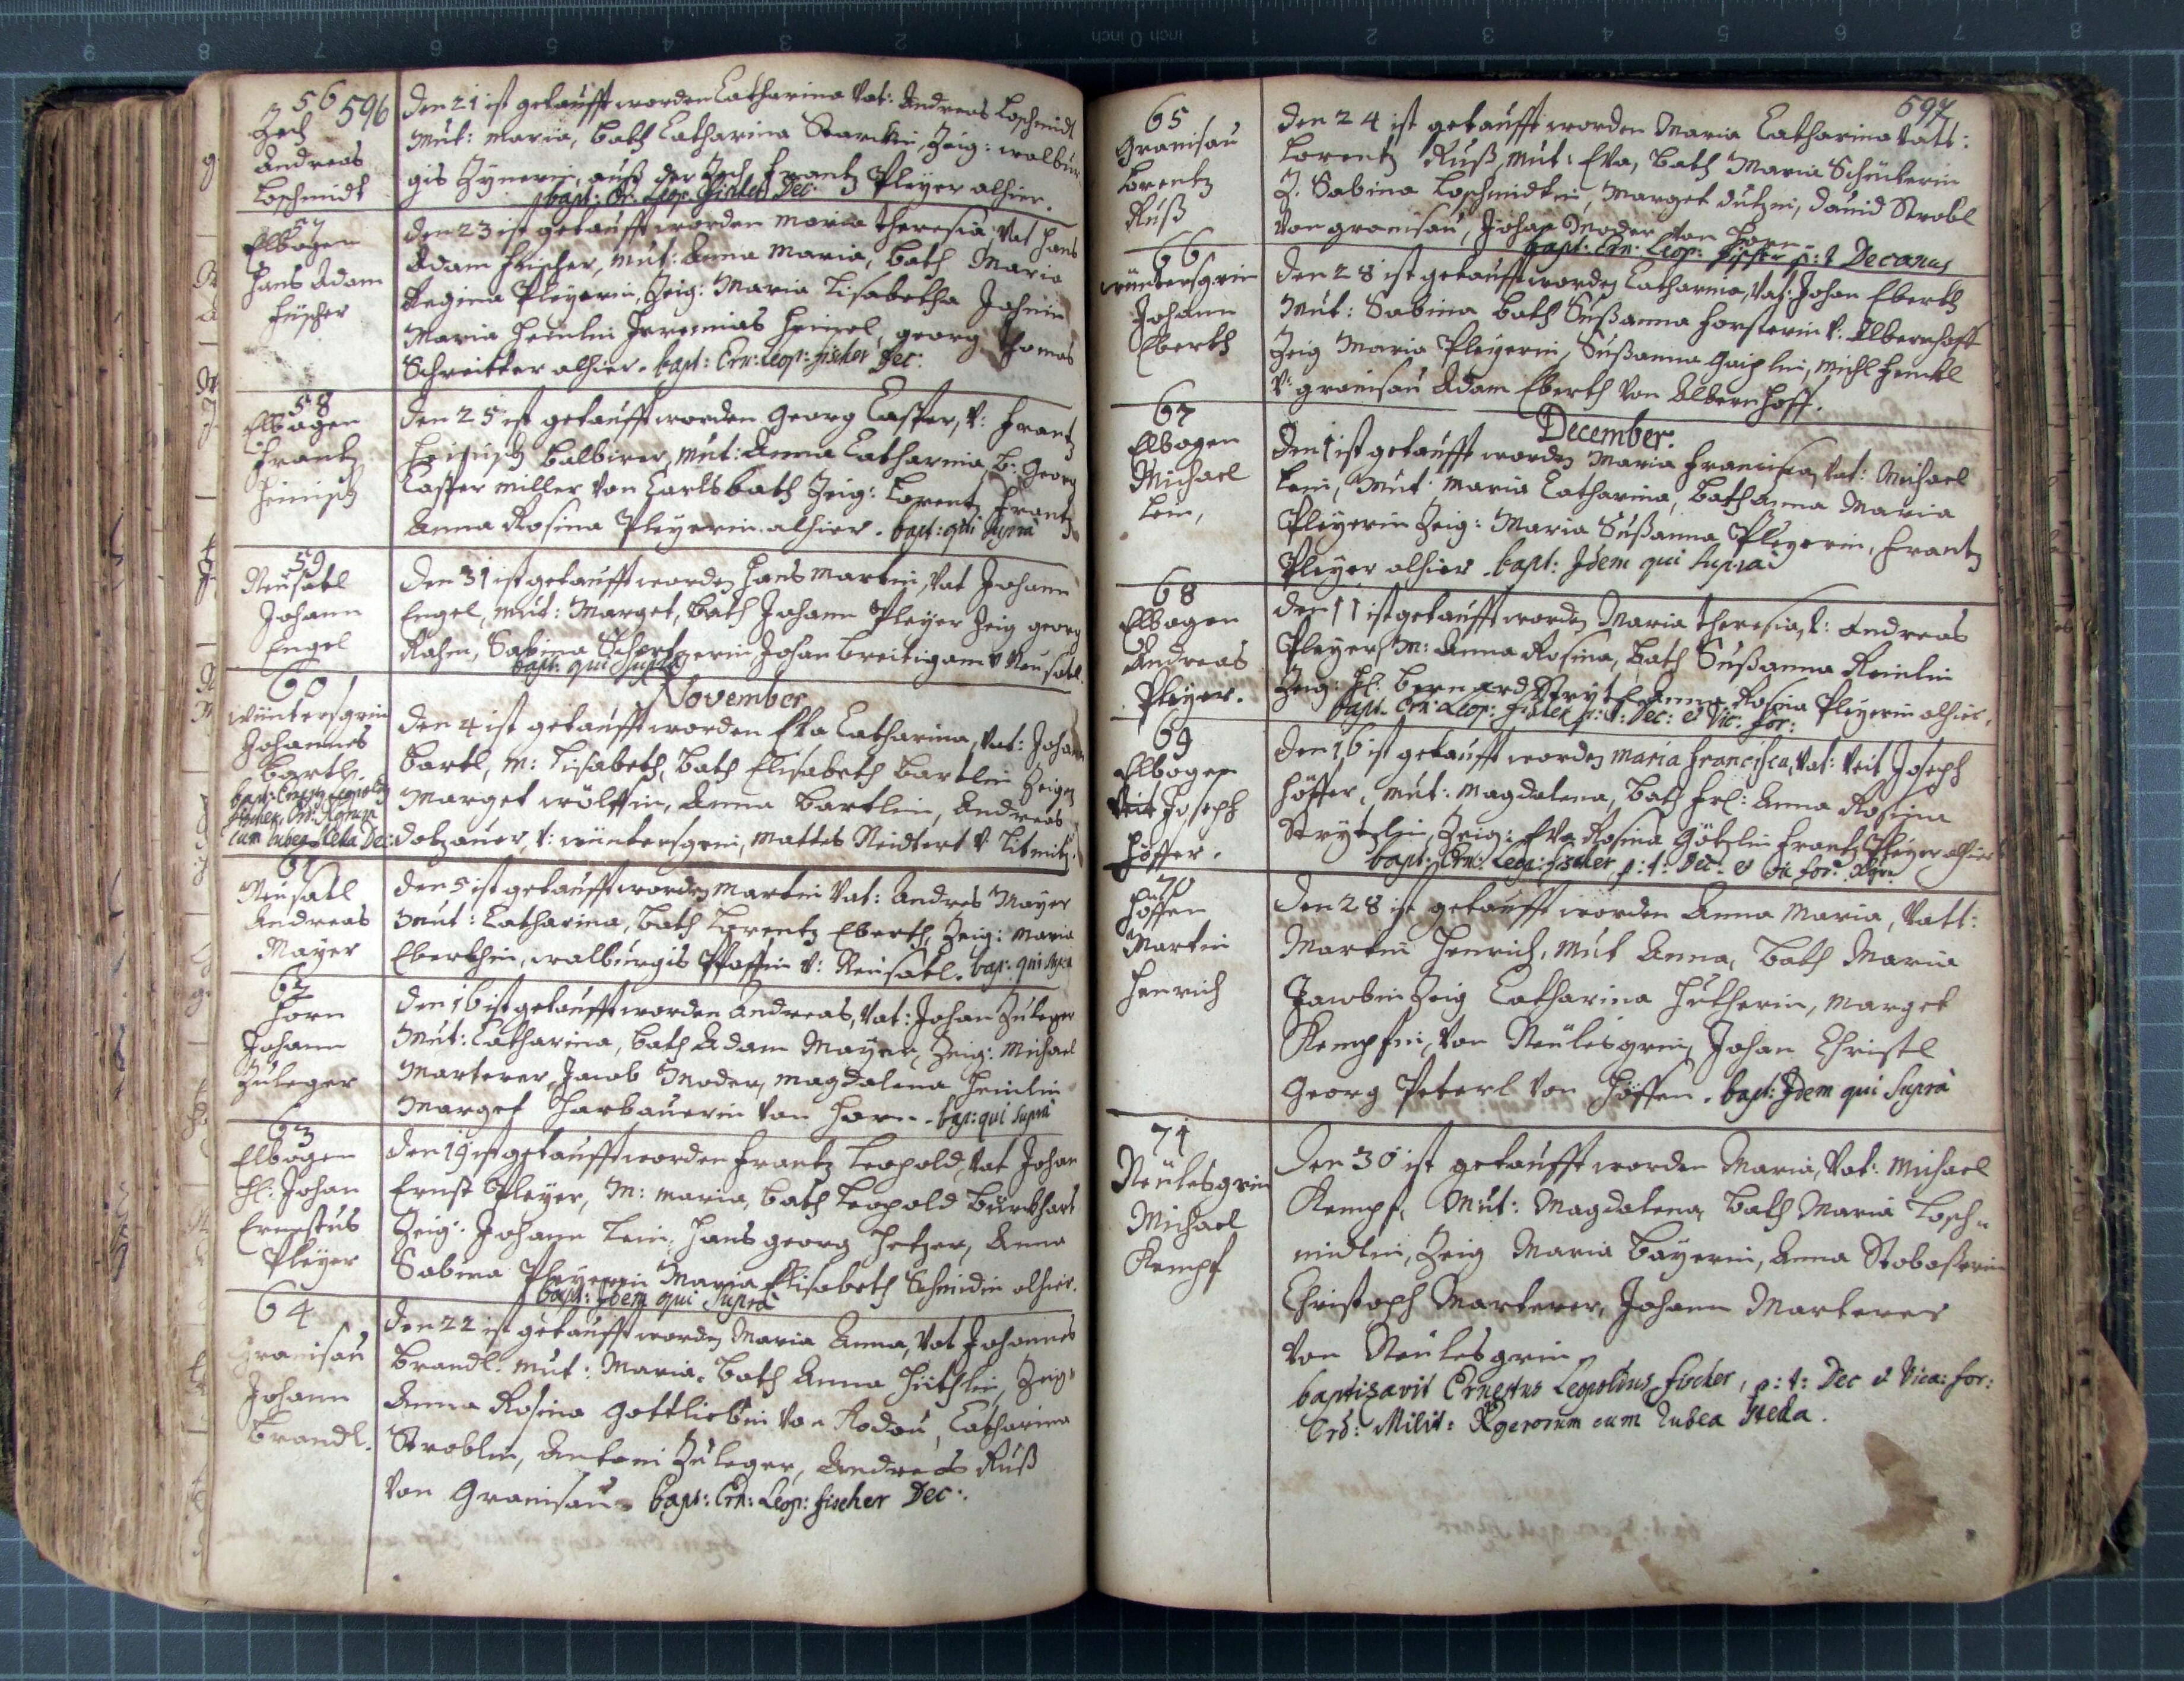 596
56
Zech
Andreas
Loschmidt
Den 21 ist getaufft worden Catharina Vat: Andreas Loschmidt
Mut: Maria, Bath Catharina Starckin, Zeig: Walbur
gis Zynerin, auß der Zech Frantz Pleyer alhier.
bapt: Er: Leop: Fischer Dec:
57
Elbogen
Hans Adam
Fischer
Den 23 ist getaufft worden Maria Theresia Vat Hans
Adam Fischer, Mut: Anna Maria, Bath Maria
Regina Pleyerin, Zeig: Maria Lisabetha
Maria Heinlin Jeremias georg Thomas
Schreitter alhier. bapt: Ern: Leop: fischer Dec:
58
Elbogen
Frantz
Heinisch
Den 25 ist getaufft worden Georg Casper, V: Frantz
Heinisch Balbirer, Mut: Anna Catharina, B: Georg
Casper Miller von Carlsbath Zeig: Lorentz Frantz
Anna Rosina Pleyerin alhier. bapt: qui supra
59
Neusatl
Johann
Engel
Den 31 ist getaufft worden Hans Martin, Vat Johann
Engel, Mut: Marget, Bath Johann Pleyer Zeig georg
Rahm, Sabina Johan Breitigam v Neusatl.
bapt: qui supra
60
November
Wintersgrin
Johannes
Bartl.
bapt: Ernestus Leopoldus
fischer, Ord:
cum rubea stella Dec:
Den 4 ist getaufft worden Eva Catharina, Vat: Johann
Bartl, M: Lisabeth, Bath Elisabeth Bartlin Zeigen
Marget Wölffin, Anna Bartlin, Andreas
Dotzauer, v: Wintersgrin, Mattes Neidtert v Litmitz.
61
Neusatl
Andreas
Mayer
Den 5 ist getaufft worden Martin Vat: Andres Mayer
Mut: Catharina, Bath Lorentz Eberth, Zeig: Maria
Eberthin, Walburgis Pfaffin v: Neusatl. bap: qui supra
62
Horn
Johann
Zuleger
Den 16 ist getaufft worden Andreas, Vat: Johan Zuleger
Mut: Catharina, Bath Adam Mayer, Zeig: Michael
Marterer, Jacob Moder, Magdalena Heinlin
Marget Harbauerin von Horn. bap: qui supra
63
Elbogen
H: Johan
Ernestus
Pleyer
Den 19 ist getaufft worden Frantz Leopold, Vat Johan
Ernst Pleyer, M: Maria, Bath Leopold Burckhart
Zeig: Johann Lein, Hans georg Hetzer, Anna
Sabina Pleyerin Maria Elisabeth Schmidin alhier.
bapt: Idem qui Supra
64
Granisau
Johann
Brandl.
Den 22 ist getaufft worden Maria Anna, Vat Johannes
Brandl. Mut: Maria. Bath Anna Zeig:
Anna Rosina Gottliebin von Rodau, Catharina
Stroblin, Antoni Zuleger, Andreas Ruß
von Granisau. bapt: Ern: Leop: fischer Dec:
597
65
Granisau
Lorentz
Ruß
Den 24 ist getaufft worden Maria Catharina Vatt:
Lorentz Ruß, Mut: Eva, Bath Maria Schinterin
Z. Sabina Loschmidtin, Marget Dutzin, David Strobl
von granisau, Johan Moder von Horn
bapt: Ern: Leop: fischer p: t Decanus
66
Wintersgrin
Johann
Eberth
Den 28 ist getaufft worden Catharina, Vat: Johan Eberth
Mut: Sabina Bath Sußanna Forsterin v: Albernhoff
Zeig Maria Pleyerin, Sußanna Michl Henckl
v: granisau Adam Eberth von Albernhoff.
67
December.
Elbogen
Michael
Lein,
Den 1 ist getaufft worden Maria Francisca, Vat: Michael
Lein, Mut: Maria Catharina, Bath Anna Maria
Pleyerin Zeig: Maria Sußanna Pleyerin, Frantz
Pleyer alhier. bapt: Idem qui supra
68
Elbogen
Andreas
Pleyer.
Den 11 ist getaufft worden Maria Theresia, V: Andreas
Pleyer, M: Anna Rosina, Bath Sußanna Reinlin
Zeig: H: Bernard Anna Rosina Pleyerin alhier.
bapt. Ern: Leop: Fischer p: t: Dec: et Vic: for:
69
Elbogen
Veit Joseph
Höffer.
Den 16 ist getaufft worden Maria Francisca, Vat: Veit Joseph
Höffer, Mut: Magdalena, Bath Frl: Anna Rosina
Zeig: Eva Rosina Götzlin Frantz Pleyer alhier
bapt: Ern: Leop: fischer p: t: Dec: et Vic for:
70
Höffen
Martin
Henrich
Den 28 ist getaufft worden Anna Maria, Vatt:
Martin Henrich, Mut Anna, Bath Maria
Jacobin Zeig Catharina Hutherin, Marget
Kempfin, von Neulesgrin, Johan Christl
Georg Peterl von Höffen. bapt: Idem qui supra
71
Neulesgrin
Michael
Kempf
Den 30 ist getaufft worden Maria, Vat: Michael
Kempf, Mut: Magdalena, Bath Maria Losch=
midtin, Zeig Maria Bayerin, Anna
Christoph Marterer, Johann Marterer
von Neulesgrin
baptizavit Ernestus Leopoldus fischer, p: t: Dec et Vica: for:
Ord: Milit: cum rubea stella.